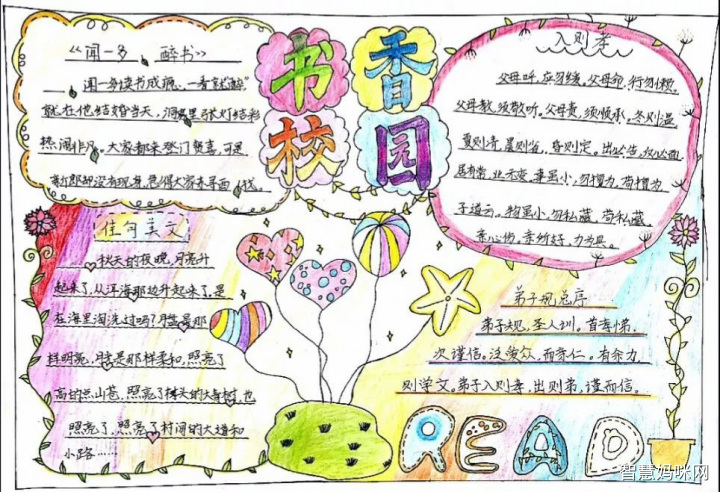 《闻一多，醉书》
闻一多读书成瘾，一看就"醉"
就在他结婚当天，洞房里张灯结彩
热闹非凡。大家都来登门贺喜，可是
新郎却没有现身，急得大家
书香
校园
入则孝
父母呼，应勿缓。父母命，行勿懒。
父母教，须敬听。父母责，须顺承。冬则温
夏则凊，晨则省，昏则定。出必告，反必面
居有常，业无变。事虽小，勿擅为。苟擅为
子道云。物虽小，勿私藏，苟私藏
亲心伤，亲所好，力为具。
佳句美文
秋天的夜晚，月亮升
起来了，从洋海那边升起来了。是
在海里淘洗过吗？月盘是那
样明亮，月盘是那样柔和，照亮了
高的点山苍，照亮了村头的大青树，也
照亮了，照亮了村间的大道和
小路……
弟子规总序
弟子规，圣人训。首孝悌，
次谨信。泛爱众，而亲仁。有余力，
则学文。弟子入则孝，出则弟，谨而信。
READ
智慧妈咪网